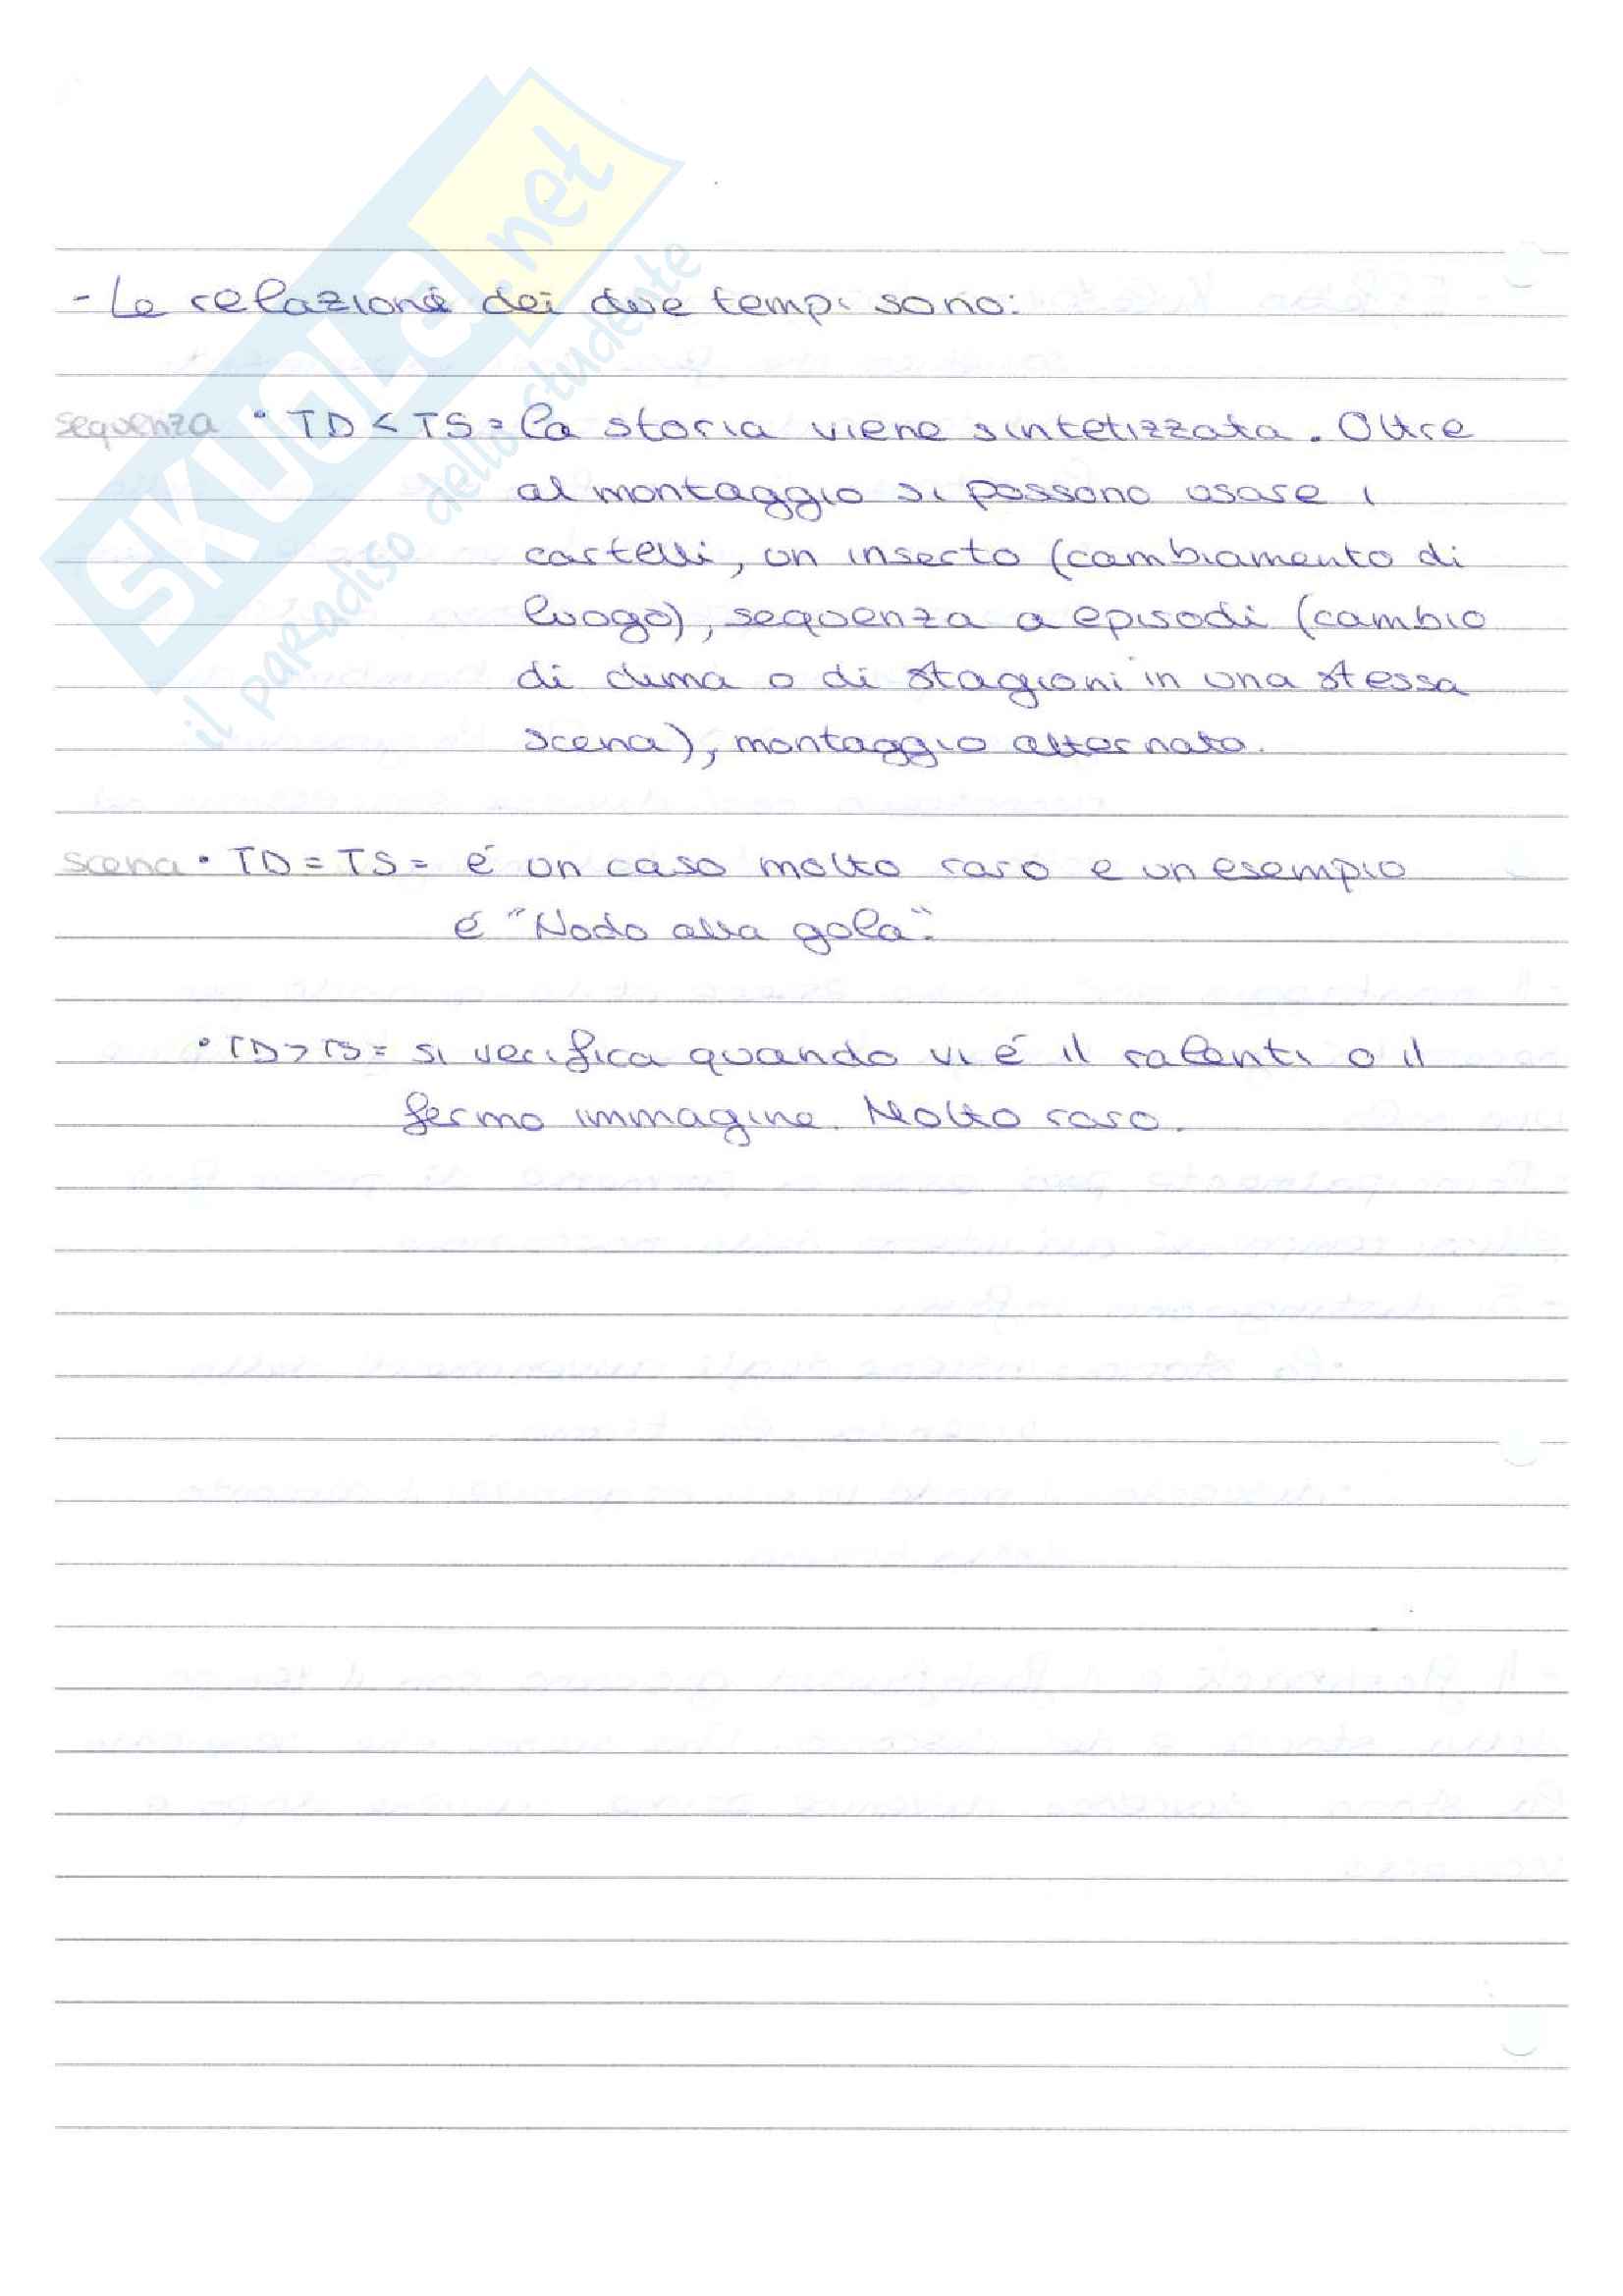 SKUOLA.net
il paradiso dello studente
- Le relazioni dei due tempi sono:
sequenza • TD < TS = la storia viene sintetizzata. Oltre
al montaggio si possono usare i
cartelli, un inserto (cambiamento di
luogo), sequenza a episodi (cambio
di clima o di stagioni in una stessa
scena), montaggio alternato.
scena • TD = TS = é un caso molto raro e un esempio
é "Nodo alla gola".
• TD > TS = si verifica quando vi é il ralenti o il
fermo immagine. Molto raro.